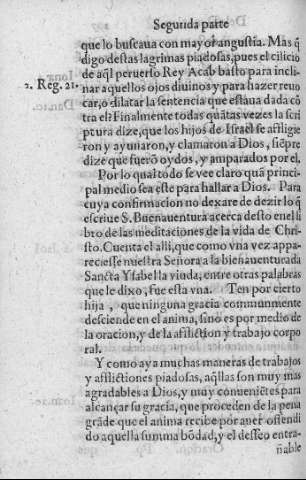 Segunda parte
que lo buscaua con mayor angustia. Mas q̃
digo destas lagrimas piadosas, pues el cilicio
de aq̃l peruerso Rey Acab basto para incli-
2. Reg. 21.
nar aquellos ojos diuinos y para hazer reuo
car, o dilatar la sentencia que estaua dada cõ
tra el? Finalmente todas quãtas vezes la scri
ptura dize, que los hijos de Israel se affligie
ron y ayunaron, y clamaron a Dios, siẽpre
dize que fuerõ oydos, y amparados por el.
Por lo qual todo se vee claro quã princi-
pal medio sea este para hallar a Dios. Para
cuya confirmacion no dexare de dezir lo q̃
escriue S. Buenauentura acerca desto en el li
bro de las meditaciones de la vida de Chri-
sto. Cuenta el alli, que como vna vez appa-
reciesse nuestra Señora a la bienauenturada
Sancta Ysabel la viuda, entre otras palabras
que le dixo, fue esta vna. Ten por cierto
hija, que ninguna gracia communmente
desciende en el anima, sino es por medio de
la oracion, y de la affliction y trabajo corpo
ral.
Y como aya muchas maneras de trabajos
y afflictiones piadosas, aq̃llas son muy mas
agradables a Dios, y muy conueniẽtes para
alcançar su gracia, que proceden de la pena
grãde que el anima recibe por auer offendi
do aquella summa bõdad, y el desseo entra-
ñable